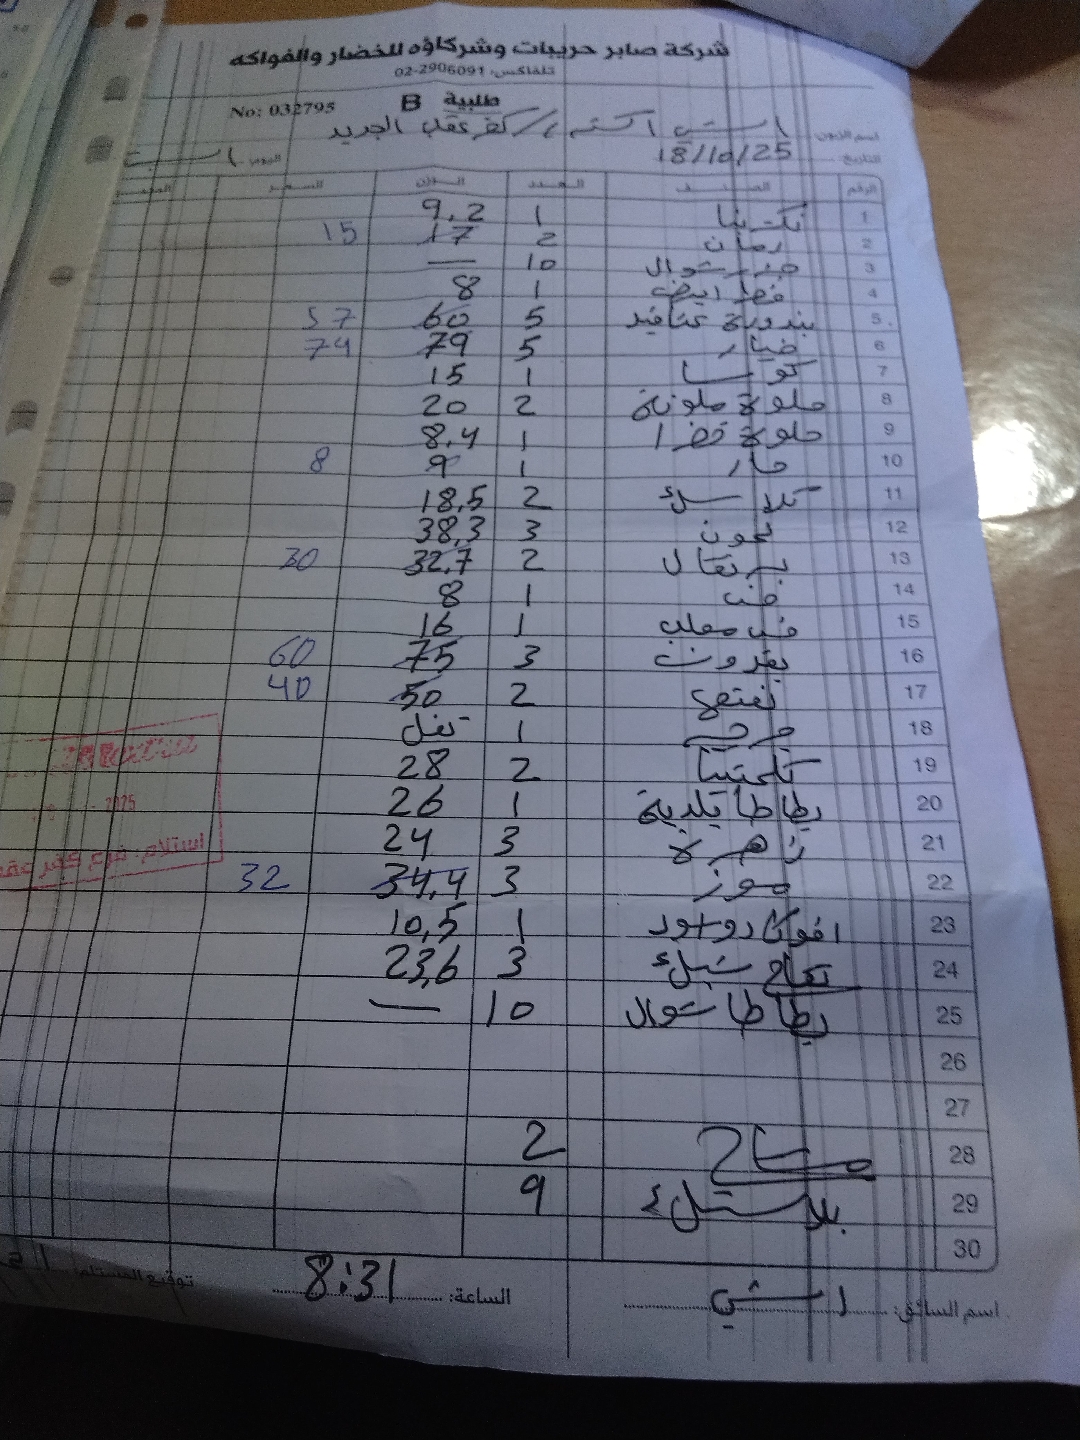 شركة صابر حريبات وشركاؤه للخضار والفواكه
تلفاكس: 02-2906091
طلبية B
No: 032795
اسم الزبون: كفر عقب الجديد
التاريخ: 18/10/25
اليوم: السبت
الرقم الصنف العدد الوزن السعر
1 نكترينا 1 9,2
2 رمان 2 17 15
3 جزر شوال 10 —
4 فطر ابيض 1 8
5 بندورة عناقيد 5 60 57
6 خيار 5 79 74
7 كوسا 1 15
8 حلوة ملونة 2 20
9 حلوة خضرا 1 8,4
10 حار 1 9 8
11 2 18,5
12 ليمون 3 38,3
13 برتقال 2 32,7 30
14 1 8
15 1 16
16 بقدونس 3 75 60
17 نعنع 2 50 40
18 جرجير 1
19 كلمنتينا 2 28
20 بطاطا بلدية 1 26
21 زهرة 3 24
22 موز 3 34,4 32
23 افوكادو 1 10,5
24 تفاح سكري 3 23,6
25 بطاطا شوال 10 —
26
27
28 مشتاح 2
29 بلاستيك 9
30
اسم السائق:
الساعة: 8:31
توقيع المستلم:
2025
استلام: فرع كفر عقب